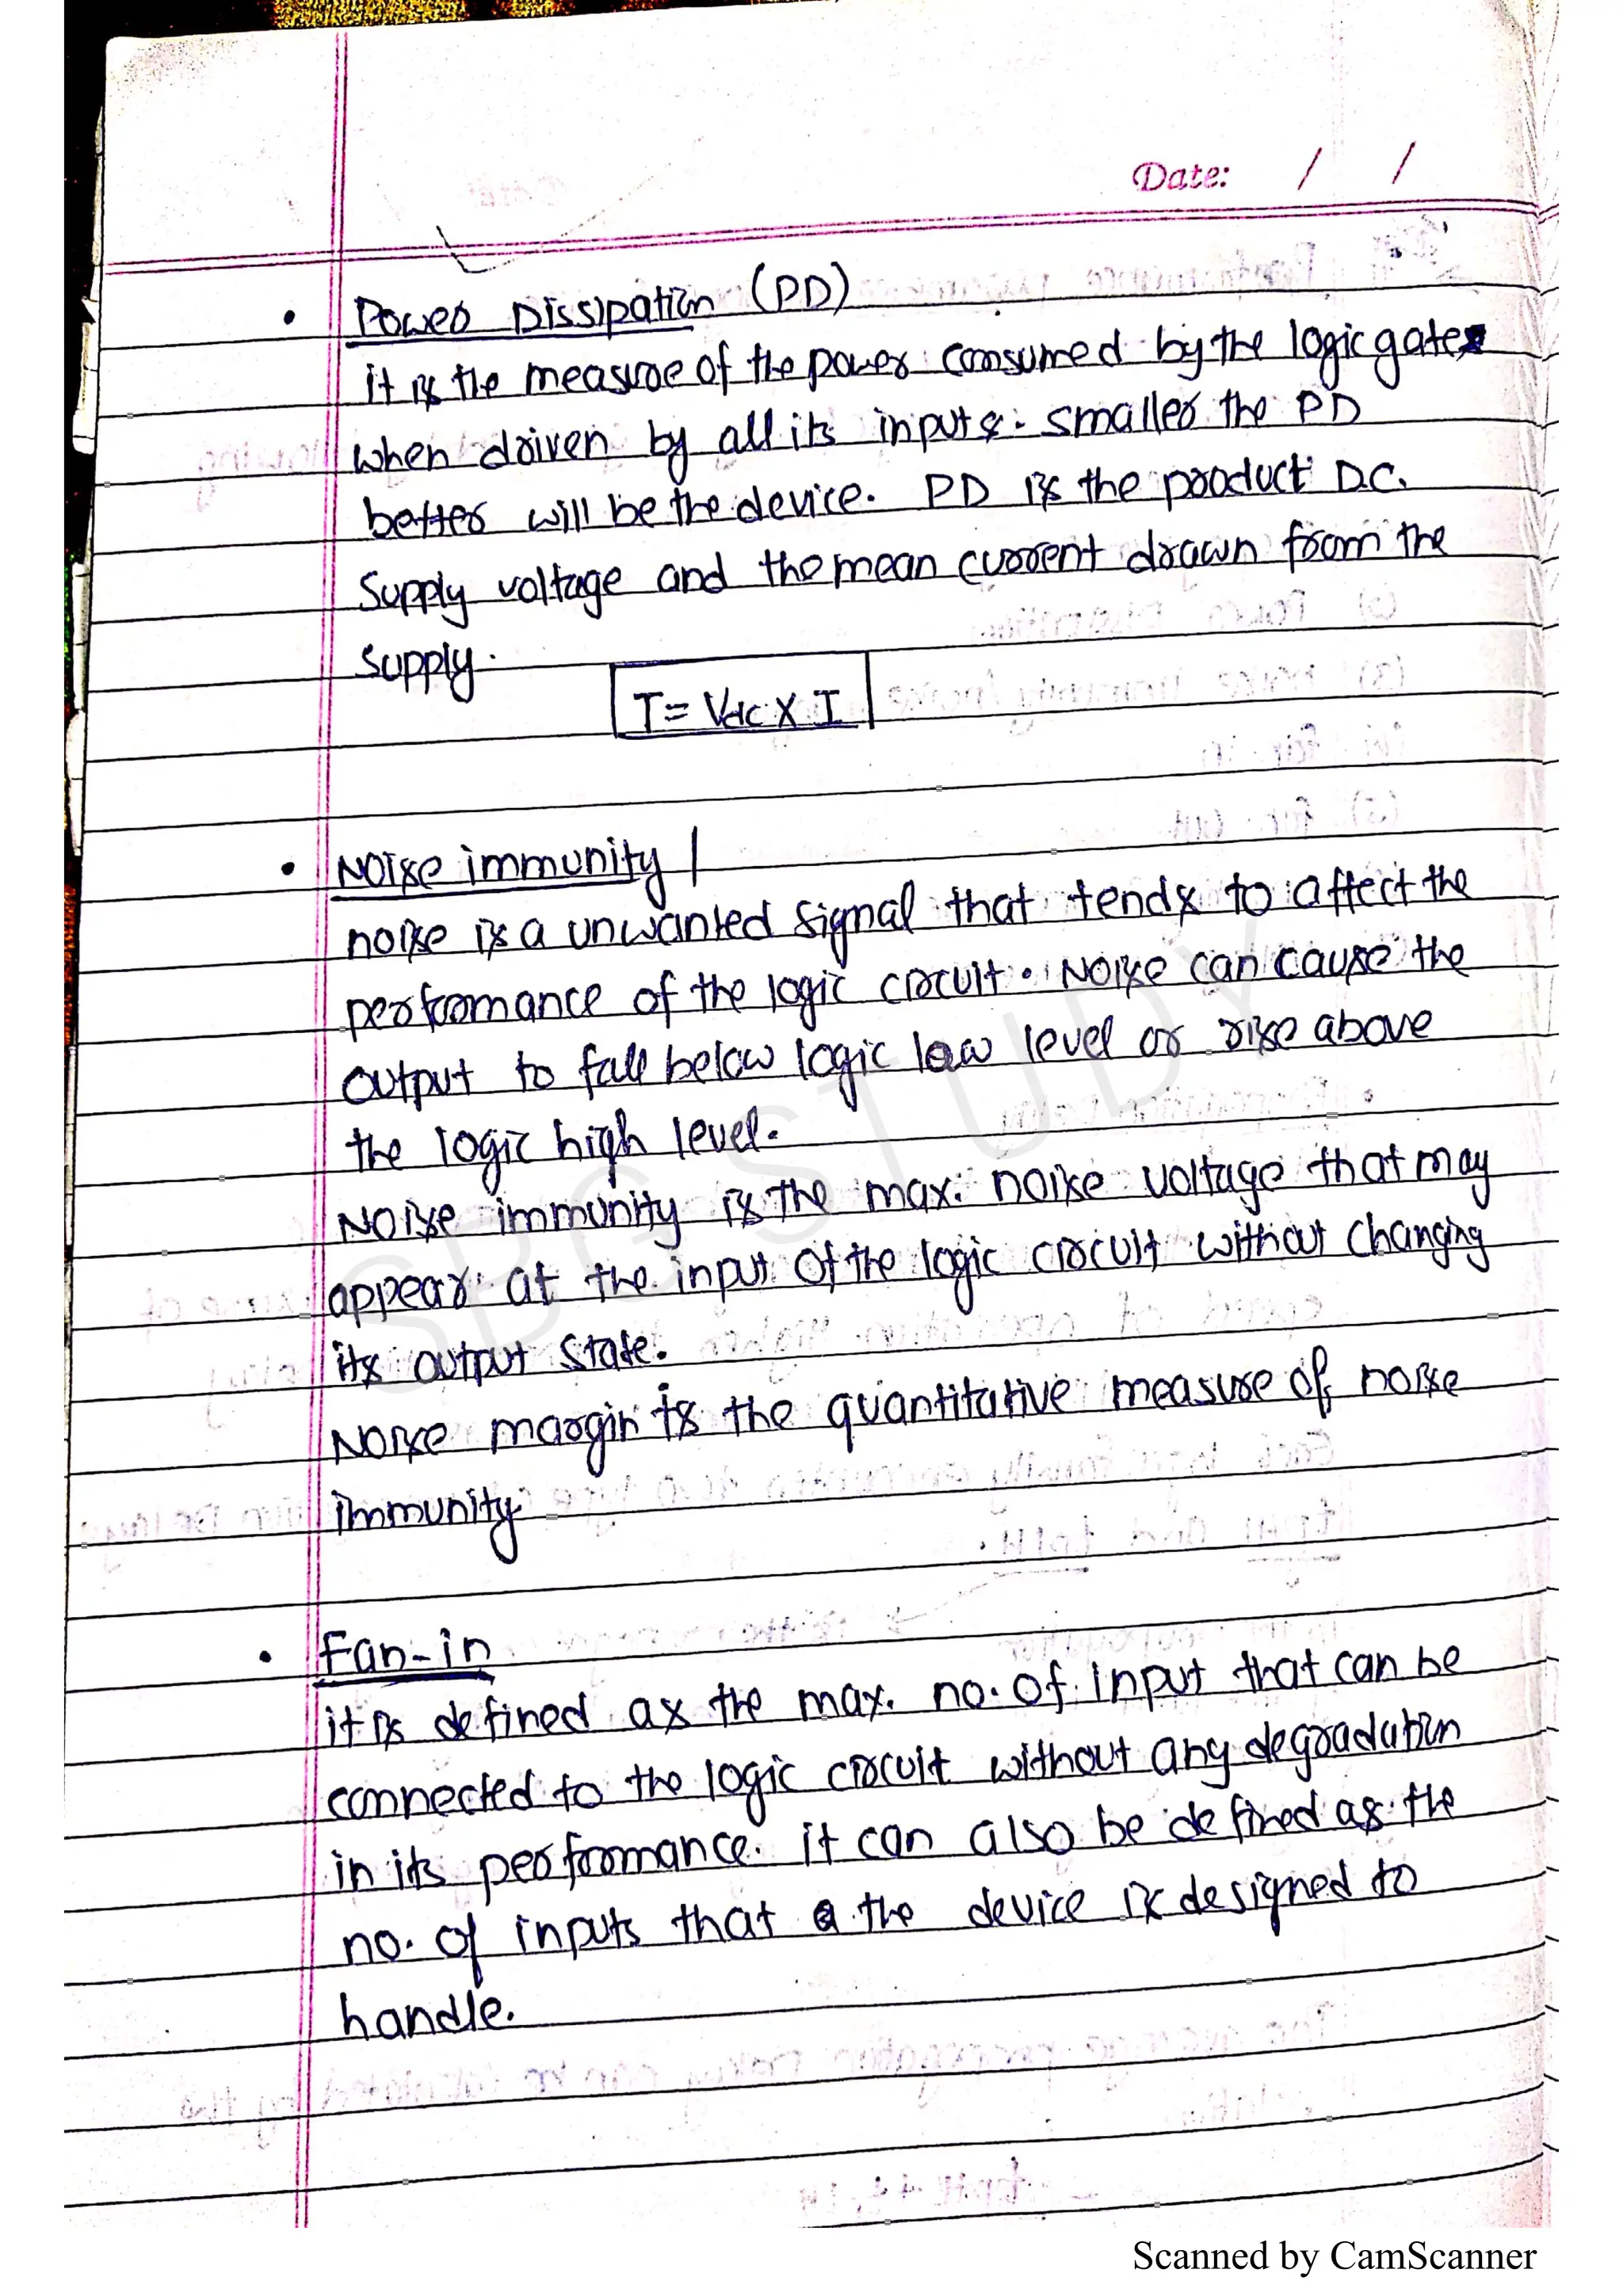 Date: / /
• Power Dissipation (PD)
it is the measure of the power consumed by the logic gates
when driven by all its inputs. smaller the PD
better will be the device. PD is the product D.C.
supply voltage and the mean current drawn from the
supply.
I = Vdc X I
• Noise immunity |
noise is a unwanted signal that tends to affect the
performance of the logic circuit. Noise can cause the
output to fall below logic low level or rise above
the logic high level.
Noise immunity is the max. noise voltage that may
appear at the input of the logic circuit without changing
its output state.
Noise margin is the quantitative measure of noise
immunity
• Fan-in
it is defined as the max. no. of input that can be
connected to the logic circuit without any degradation
in its performance. it can also be defined as the
no. of inputs that the device is designed to
handle.
SBG STUDY
Scanned by CamScanner